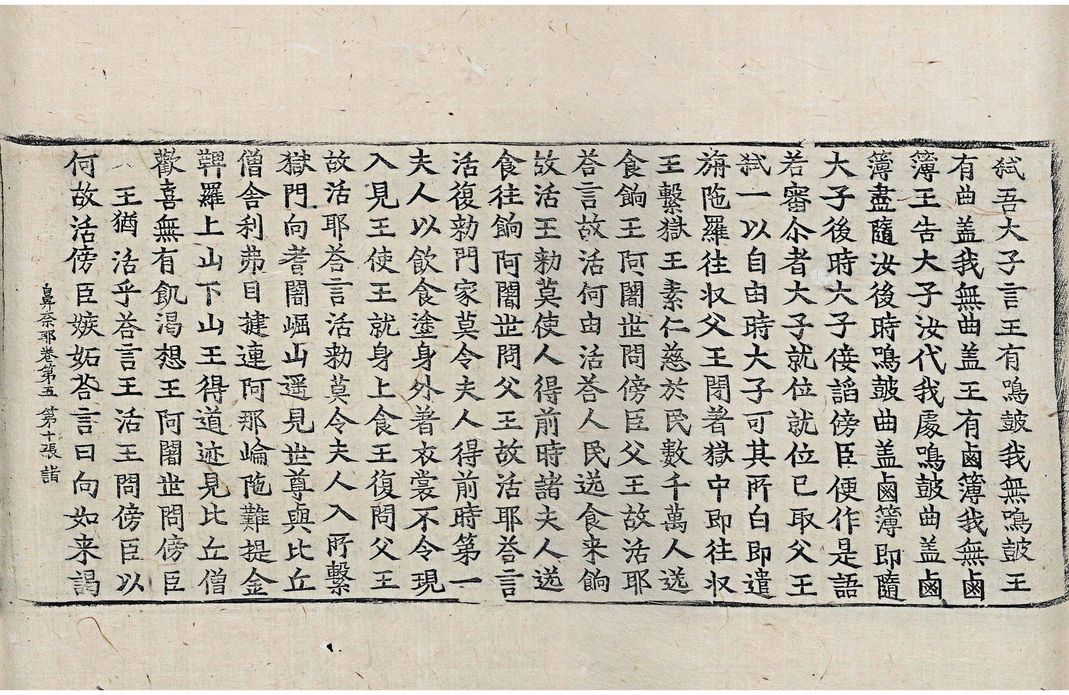 弑吾大子言王有鳴皷我無鳴皷王
有曲盖我無曲盖王有鹵簿我無鹵
簿王告大子汝代我處鳴皷曲盖鹵
簿盡隨汝後時鳴皷曲盖鹵簿即隨
大子後時大子佞諂傍臣便作是語
若審尒者大子就位就位已取父王
弑一以自由時大子可其所白即遣
旃陁羅往収父王閉著獄中即往収
王繫獄王素仁慈於民數千萬人送
食餉王阿闍丗問傍臣父王故活耶
荅言故活何由活荅人民送食来餉
故活王勑莫使人得前時諸夫人送
食往餉阿闍丗問父王故活耶荅言
活復勑門家莫令夫人得前時第一
夫人以飲食塗身外著衣裳不令現
入見王使王就身上食王復問父王
故活耶荅言活勑莫令夫人入所繫
獄門向耆闍崛山遥見世尊與比丘
僧舎利弗目揵連阿那崘陁難提金
鞞羅上山下山王得道迹見比丘僧
歡喜無有飢渴想王阿闍丗問傍臣
王猶活乎荅言王活王問傍臣以
何故活傍臣嫉妬荅言曰向如来謁
鼻奈耶卷第五　第十張　諧